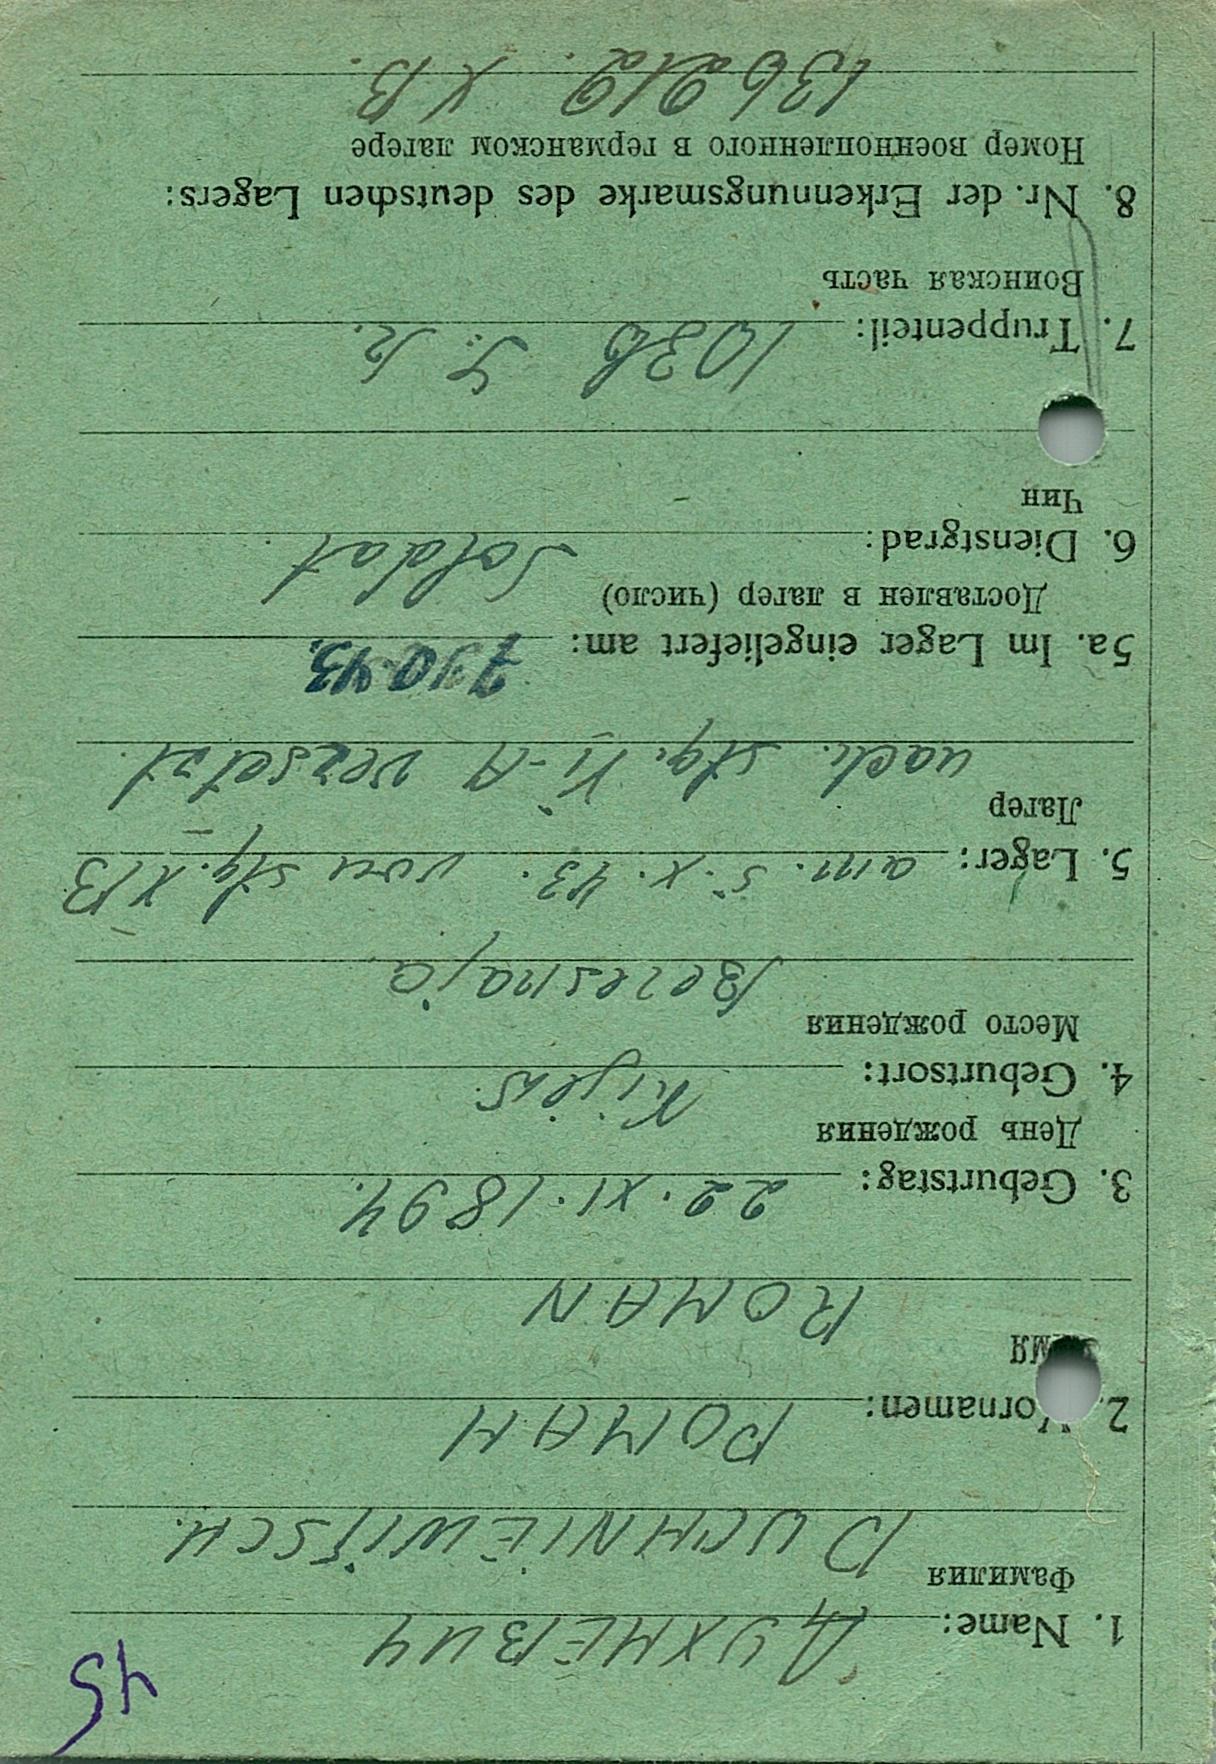 45
1. Name: ДУХНЕВИЧ
Фамилия
DUCHNIEWITSCH.
2. Vornamen: РОМАН
Имя
ROMAN
3. Geburtstag: 22. XI. 1894.
День рождения
4. Geburtsort: Kijew.
Место рождения
Beresnaja
5. Lager: am. 5. X. 43. von Stg. XB
Лагер
nach. Stg. VI-A versetzt.
5a. Im Lager eingeliefert am: 7.10.43.
Доставлен в лагер (число)
6. Dienstgrad: Soldat.
Чин
7. Truppenteil: 1036 J. R.
Воинская часть
8. Nr. der Erkennungsmarke des deutschen Lagers:
Номер военнопленного в германском лагере
136212. XB.